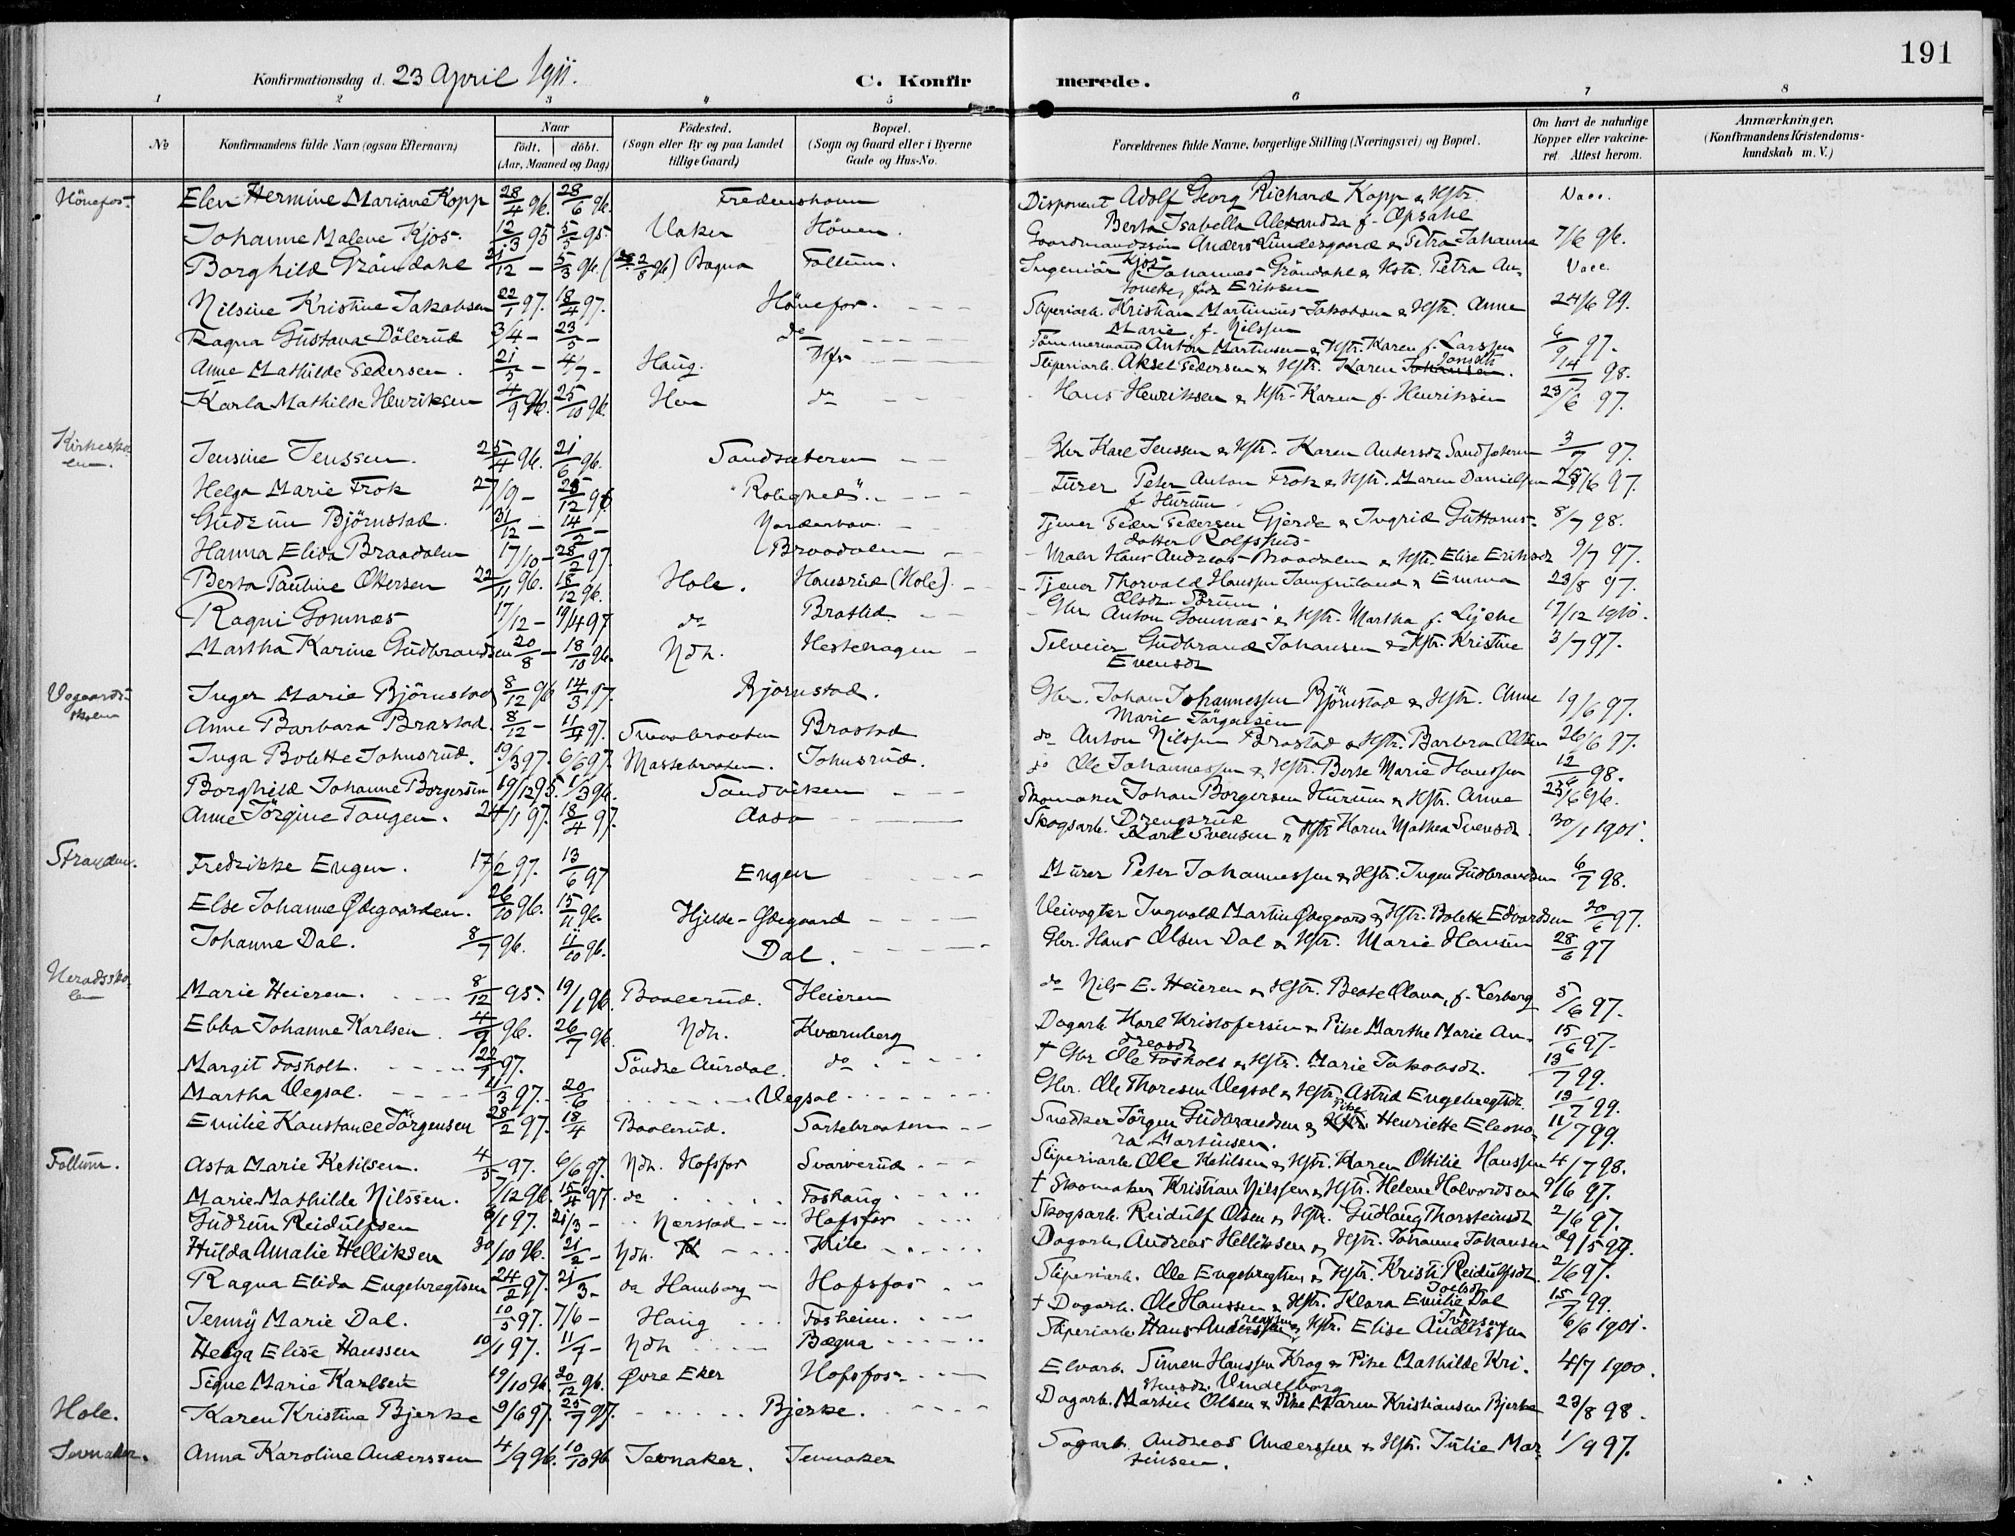 191
Konfirmationsdag d. 23 April 1911. C. Konfirmerede.
1 2 3 4 5 6 7 8
No Konfirmandens fulde Navn (ogsaa Efternavn) Naar født. døbt. (Aar, Maaned og Dag) Fødested. (Sogn eller By og paa Landet tillige Gaard) Bopæl. (Sogn og Gaard eller i Byerne Gade og Hus-No. Forældrenes fulde Navne, borgerlige Stilling (Næringsvei) og Bopæl. Om havt de naturlige Kopper eller vakcineret Attest herom. Anmærkninger. (Konfirmandens Kristendomskundskab m. V.)
Hönefos. Elen Hermine Mariane Kopp 28/4 96. 28/6 96. Fredensham Disponent Adolf Georg Richard Kopp & Hstr. Vacc.
Berta Isabella Alexandra f. Opsahl
Johanne Malene Kjos. 12/3 95 5/5 95. Vaker Hönen. Gaardmandssön Anders Lundesgaard & Petra Johanne Kjos 7/6 96.
Borghild Gröndahl 21/12 - 5/3 96. Bagna Follum. Ingeniör Johannes Gröndahl & Hstr. Petra An- Vacc.
tonette, föd Eriksen
Nilsine Kristine Jakobsen 22/1 97. 18/4 97. Hönefos. Sliperiarb. Kristian Martinius Jakobsen & Hstr. Anne 24/6 99.
Marie, f. Nilssen
Ragna Gustava Dölerud 3/4 - 23/5 - do Tömmermand Anton Martinsen & Hstr. Karen f. Larssen 6/9 97.
Anne Mathilde Pedersen. 21/5 - 4/7 - Haug. Hfs Sliperiarb. Aksel Pedersen & Hstr. Karen Jonsdtr. 14/7 98.
Karla Mathilde Henriksen 4/9 96. 25/10 96. Hen do Hans Henriksen & Hstr. Karen f. Henriksen 23/6 97.
Kirkeskolen. Jensine Jenssen. 25/4 96. 21/6 96. Sandsæteren Gbr Karl Jenssen & Hstr. Karen Andersdt Sandsæteren 3/7 97.
Helga Marie Frok 27/9 - 28/12 96 "Rolighed". Murer Peter Anton Frok & Hstr. Maren Danielsen 28/6 97.
f. Hurum.
Gudrun Björnstad. 31/12 - 14/2 - Norderhov. Tjener Peder Pedersen Gjerde & Ingrid Guttorms- 8/7 98.
datter Rolfsrud
Hanna Elida Braadalen 17/10 - 28/2 97. Braadalen Maler Hans Andreas Braadalen & Hstr. Elise Eriksdt 9/7 97.
Berta Pauline Ottersen 22/11 96. 18/12 96. Hole. Hansrud (Hole). Tjener Thorvald Hanssen Jomfruland & Emma 23/8 97.
Olsdt. Sörum.
Ragni Gomnæs 17/12 - 19/4 97 do Brastad Gbr Anton Gomnæs & Hstr. Martha f. Lijehe 17/12 1910.
Martha Karine Gudbrandsen 20/8 - 18/10 96. Ndh. Hestehagen Selveier Gudbrand Johansen & Hstr. Kristine 3/7 97.
Evensdt
Vegaardsskolen Inger Marie Björnstad 8/12 96 14/3 97. Björnstad. Gbr. Johan Johannessen Björnstad & Hstr. Anne 19/6 97.
Marie Jörgensen
Anne Barbara Brastad. 8/12 - 11/4 97. Smaabraaten Brastad do Anton Nilssen Brastad & Hstr. Barbra Olsen 26/6 97.
Inga Bolette Johnsrud. 19/3 97. 6/6 97. Massebraaten. Johnsrud. do Ole Johannessen & Hstr. Berte Marie Hanssen 12/6 98.
Borghild Johanne Borgersen 19/12 95. 1/3 96. Sandviken Skomaker Johan Borgersen Hurum & Hstr. Anne 23/6 96.
Drengsrud
Anne Jörgine Tangen. 24/1 97. 18/4 97. Aasa Skogsarb. Karl Svensen & Hstr Karen Mathea Svensdt. 30/1 1901.
Stranden. Fredrikke Engen. 17/2 97. 13/6 97 Engen Murer Peter Johannessen & Hstr. Ingen Gudbrandsen 6/7 98.
Else Johanne Ødegaarden. 26/10 96. 15/11 96. Hjelde-Ødegaard Veivogter Ingvald Martin Ødegaard & Hstr. Bolette Edvardsen 20/6 97.
Johanne Dal. 8/7 96. 11/10 96. Dal. Gbr. Hans Olsen Dal & Hstr. Marie Hansen 28/6 97
Neradsskolen Marie Heieren. 8/12 95. 19/1 96. Baalerud. Heieren do Nils E. Heieren & Hstr. Beate Olava, f. Lerberg 5/6 97.
Ebba Johanne Karlsen. 4/9 96. 26/7 96 Ndh. Kværnberg Dagarb Karl Kristofersen & Pike Marthe Marie An- 15/6 97.
dreasdt
Margit Fosholt. 22/1 97. Söndre Aurdal. do † Gbr Ole Fosholt & Hstr. Marie Jakobsdt. 13/7 99.
Martha Vegsal. 11/3 97. 20/6 Vegsal Gbr. Ole Thoresen Vegsal & Hstr Astrid Engebregtsdt. 13/7 99.
Emilie Konstance Jörgensen 28/2 97. 18/4 Baalerud. Sortebraaten Snedker Jörgen Gudbrandsen & Pike Henriette Eleono- 11/7 99.
ra Martinsen.
Follum. Asta Marie Ketilsen. 4/5 97. 6/6 97. Ndh. Hofsfos Svarverud Sliperiarb. Ole Ketilsen & Hstr. Karen Ottilie Hanssen 4/7 98.
Marie Mathilde Nilssen. 7/12 96. 15/4 97. do Foshaug † Skomaker Kristian Nilssen & Hstr. Helene Halvordsen 9/6 97.
Gudrun Reidulfsen 6/1 97. 21/3 - Nærstad Hofsfos Skogsarb. Reidulf Olsen & Hstr. Gudlaug Thorsteinsdt 2/6 97.
Hulda Amalie Helliksen 30/10 96. 21/2 - Ndh. Kile Dagarb. Andreas Helliksen & Hstr. Johanne Johansen 29/5 99.
Ragna Elida Engebregtsen 24/2 97. 21/3 - do Hamborg Hofsfos Sliperiarb. Ole Engebregtsen & Hstr. Kristi Reidulfsdt. 2/6 97.
Jenny Marie Dal. 10/5 97. 7/6 - Haug Fosheim. † Dagarb. Ole Hanssen & Hstr. Klara Emilie Joelsdt Dal 15/7 99.
Helga Elise Hanssen 10/1 97. 11/4 - Ndh Bægna Sliperiarb Hans Anderssen & Hstr. Elise Iversen Anderssen 6/6 1901.
Signe Marie Karlsen 19/10 96. 20/12 96. Øvre Eker Hofsfos Elvarb. Simen Hanssen Krog & Pike Mathilde Kri- 4/7 1900.
stensdt. Vindelborg
Hole. Karen Kristine Bjerke 9/6 97. 25/7 97. Bjerke. Dagarb. Martin Olsen & Pike Maren Kristiansen Bjerke 23/8 98.
Jevnaker. Anna Karoline Anderssen 4/9 96. 10/10 96 Jevnaker. Jevnaker Sagarb. Andreas Anderssen & Hstr. Julie Mar- 1/9 97.
tinsen.